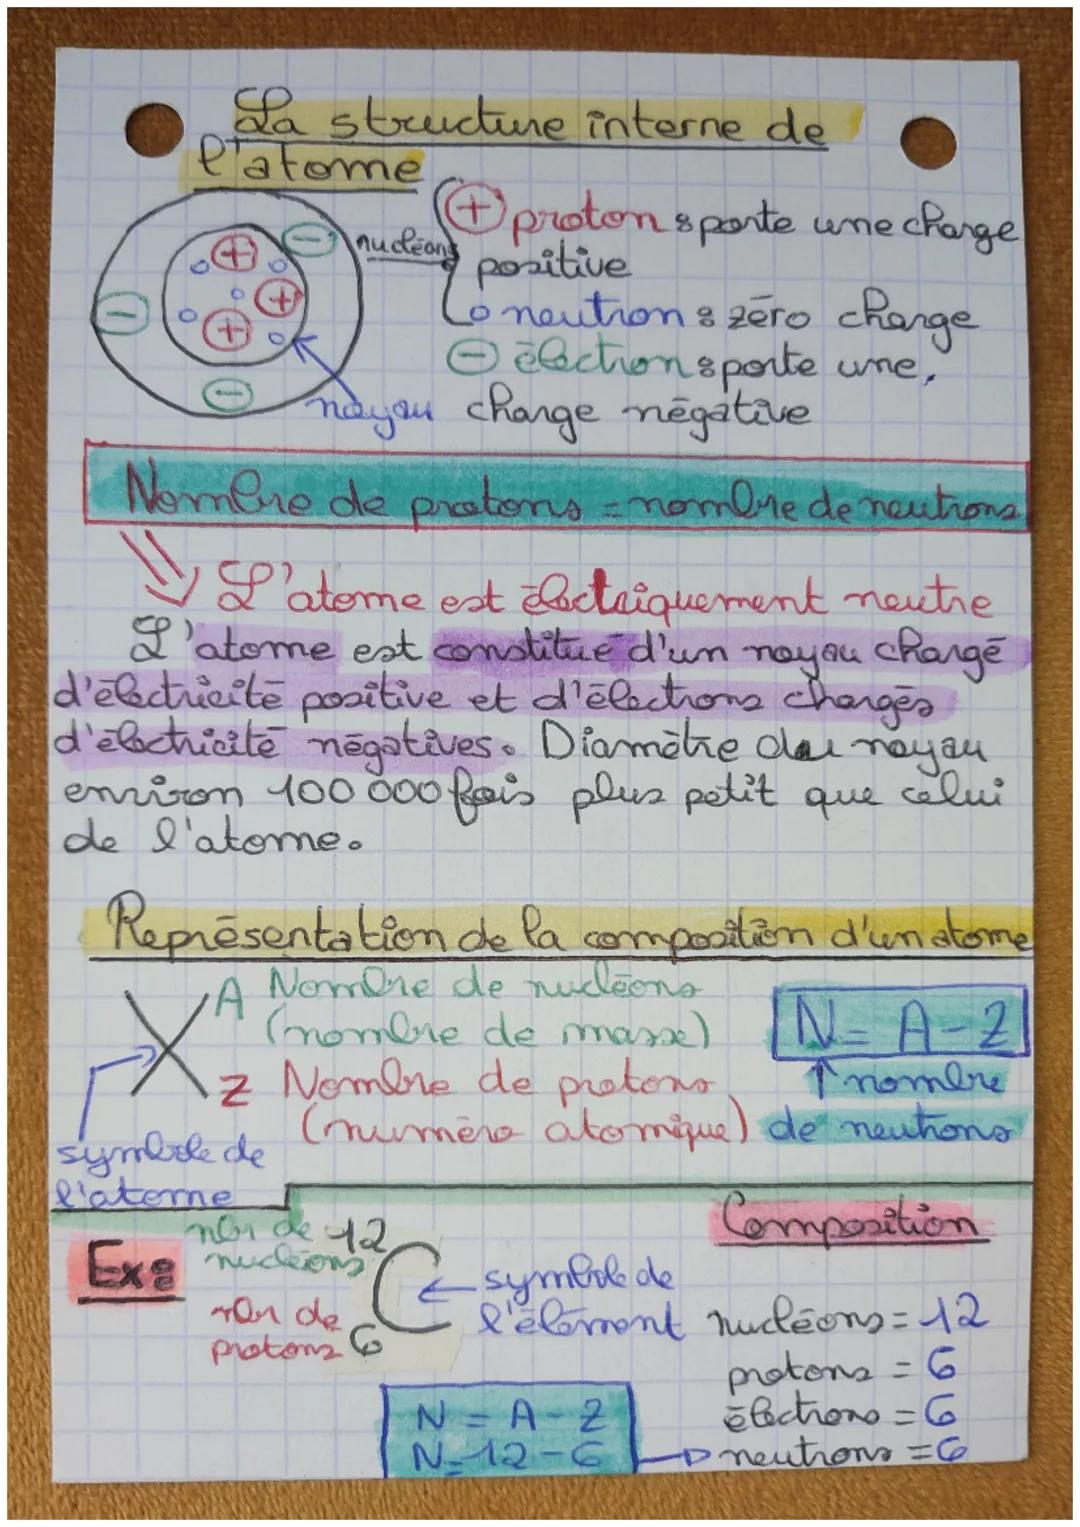 La structure interne de
l'atome
nucléons
⊕ proton : porte une charge
positive
o neutron : zéro charge
⊖ électron : porte une
charge négative
noyau
Nombre de protons = nombre de neutrons
L'atome est électriquement neutre
L'atome est constitué d'un noyau chargé
d'électricité positive et d'électrons chargés
d'électricité négatives. Diamètre du noyau
environ 100 000 fois plus petit que celui
de l'atome.
Représentation de la composition d'un atome
X
A Nombre de nucléons
(nombre de masse)
Z Nombre de protons
(numéro atomique)
symbole de
l'atome
N = A - Z
↑ nombre
de neutrons
Ex :
nbr de
nucléons
12
C
6
nbr de
protons
← symbole de
l'élément
N = A - Z
N = 12 - 6
Composition
nucléons = 12
protons = 6
électrons = 6
neutrons = 6